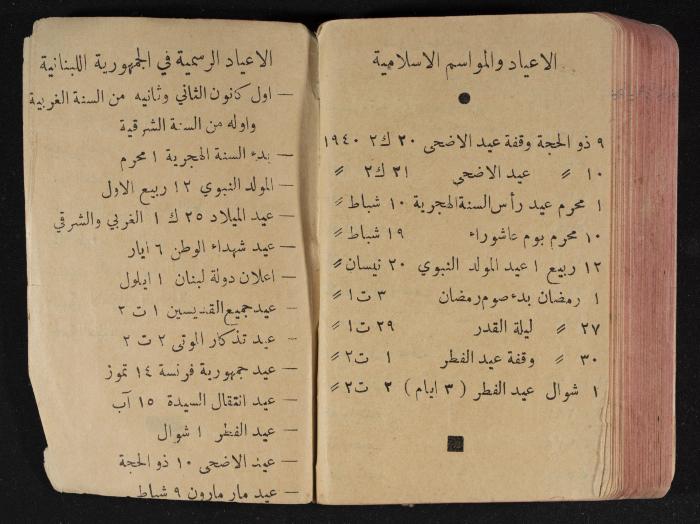 الاعياد والمواسم الاسلامية
٩ ذو الحجة وقفة عيد الاضحى ٢٠ ك٢ ١٩٤٠
١٠ 〃 عيد الاضحى ٢١ ك٢ 〃
١ محرم عيد رأس السنة الهجرية ١٠ شباط 〃
١٠ محرم يوم عاشوراء ١٩ شباط 〃
١٢ ربيع ١ عيد المولد النبوي ٢٠ نيسان 〃
١ رمضان بدء صوم رمضان ٣ ت١ 〃
٢٧ 〃 ليلة القدر ٢٩ ت١ 〃
٣٠ 〃 وقفة عيد الفطر ١ ت٢ 〃
١ شوال عيد الفطر ( ٣ ايام ) ٢ ت٢ 〃
الاعياد الرسمية في الجمهورية اللبنانية
— اول كانون الثاني وثانيه من السنة الغربية
واوله من السنة الشرقية
— بدء السنة الهجرية ١ محرم
— المولد النبوي ١٢ ربيع الاول
— عيد الميلاد ٢٥ ك ١ الغربي والشرقي
— عيد شهداء الوطن ٦ ايار
— اعلان دولة لبنان ١ ايلول
— عيد جميع القديسين ١ ت ٢
— عيد تذكار الموتى ٢ ت ٢
— عيد جمهورية فرنسة ١٤ تموز
— عيد انتقال السيدة ١٥ آب
— عيد الفطر ١ شوال
— عيد الاضحى ١٠ ذو الحجة
— عيد مار مارون ٩ شباط